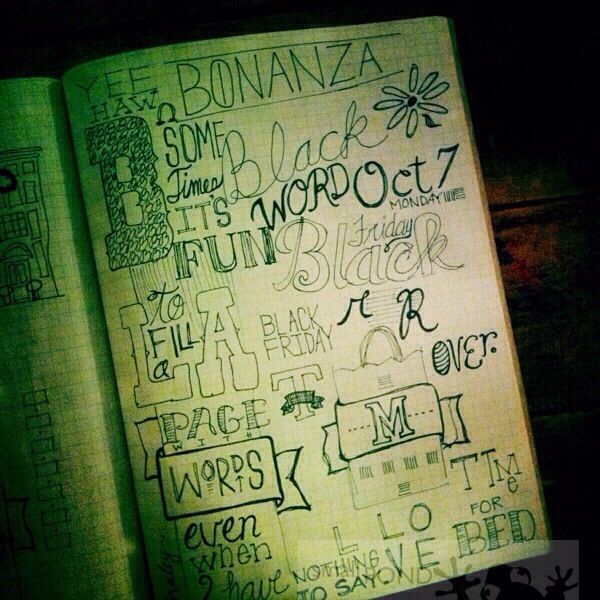 YEE HAW
BONANZA
B
SOME
Times
IT'S
FUN
to
FILL
a
PAGE
WITH
WORDS
even
when
I have
NOTHING
TO SAY
Black
WORD
Oct 7
MONDAY
Friday
Black
LA
BLACK
FRIDAY
r R
OVER.
T
M
TIME
FOR
BED
L LO
VE